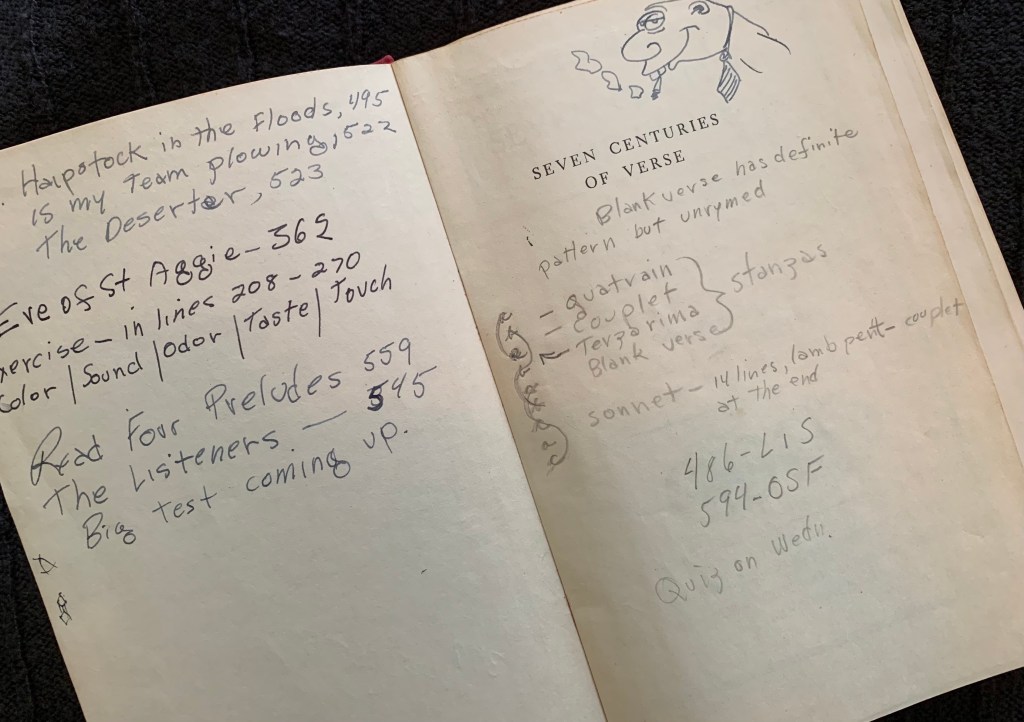 Haipstock in the Floods, 495
is my Team plowing, 522
The Deserter, 523
Eve of St Aggie - 362
exercise - in lines 208 - 270
Color | Sound | Odor | Taste | Touch
Read Four Preludes 559
The Listeners — 545
Big test coming up.
SEVEN CENTURIES
OF VERSE
Blank verse has definite
pattern but unrymed
- quatrain
= couplet
Terzarima
Blank verse
stanzas
sonnet - 14 lines, Iamb pent - couplet
at the end
486-LIS
594-OSF
Quiz on Wedn.